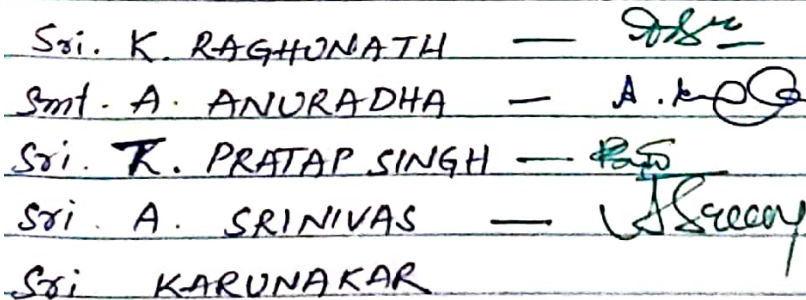 Sri. K. RAGHUNATH —
Smt. A. ANURADHA —
Sri. R. PRATAP SINGH —
Sri. A. SRINIVAS —
Sri KARUNAKAR